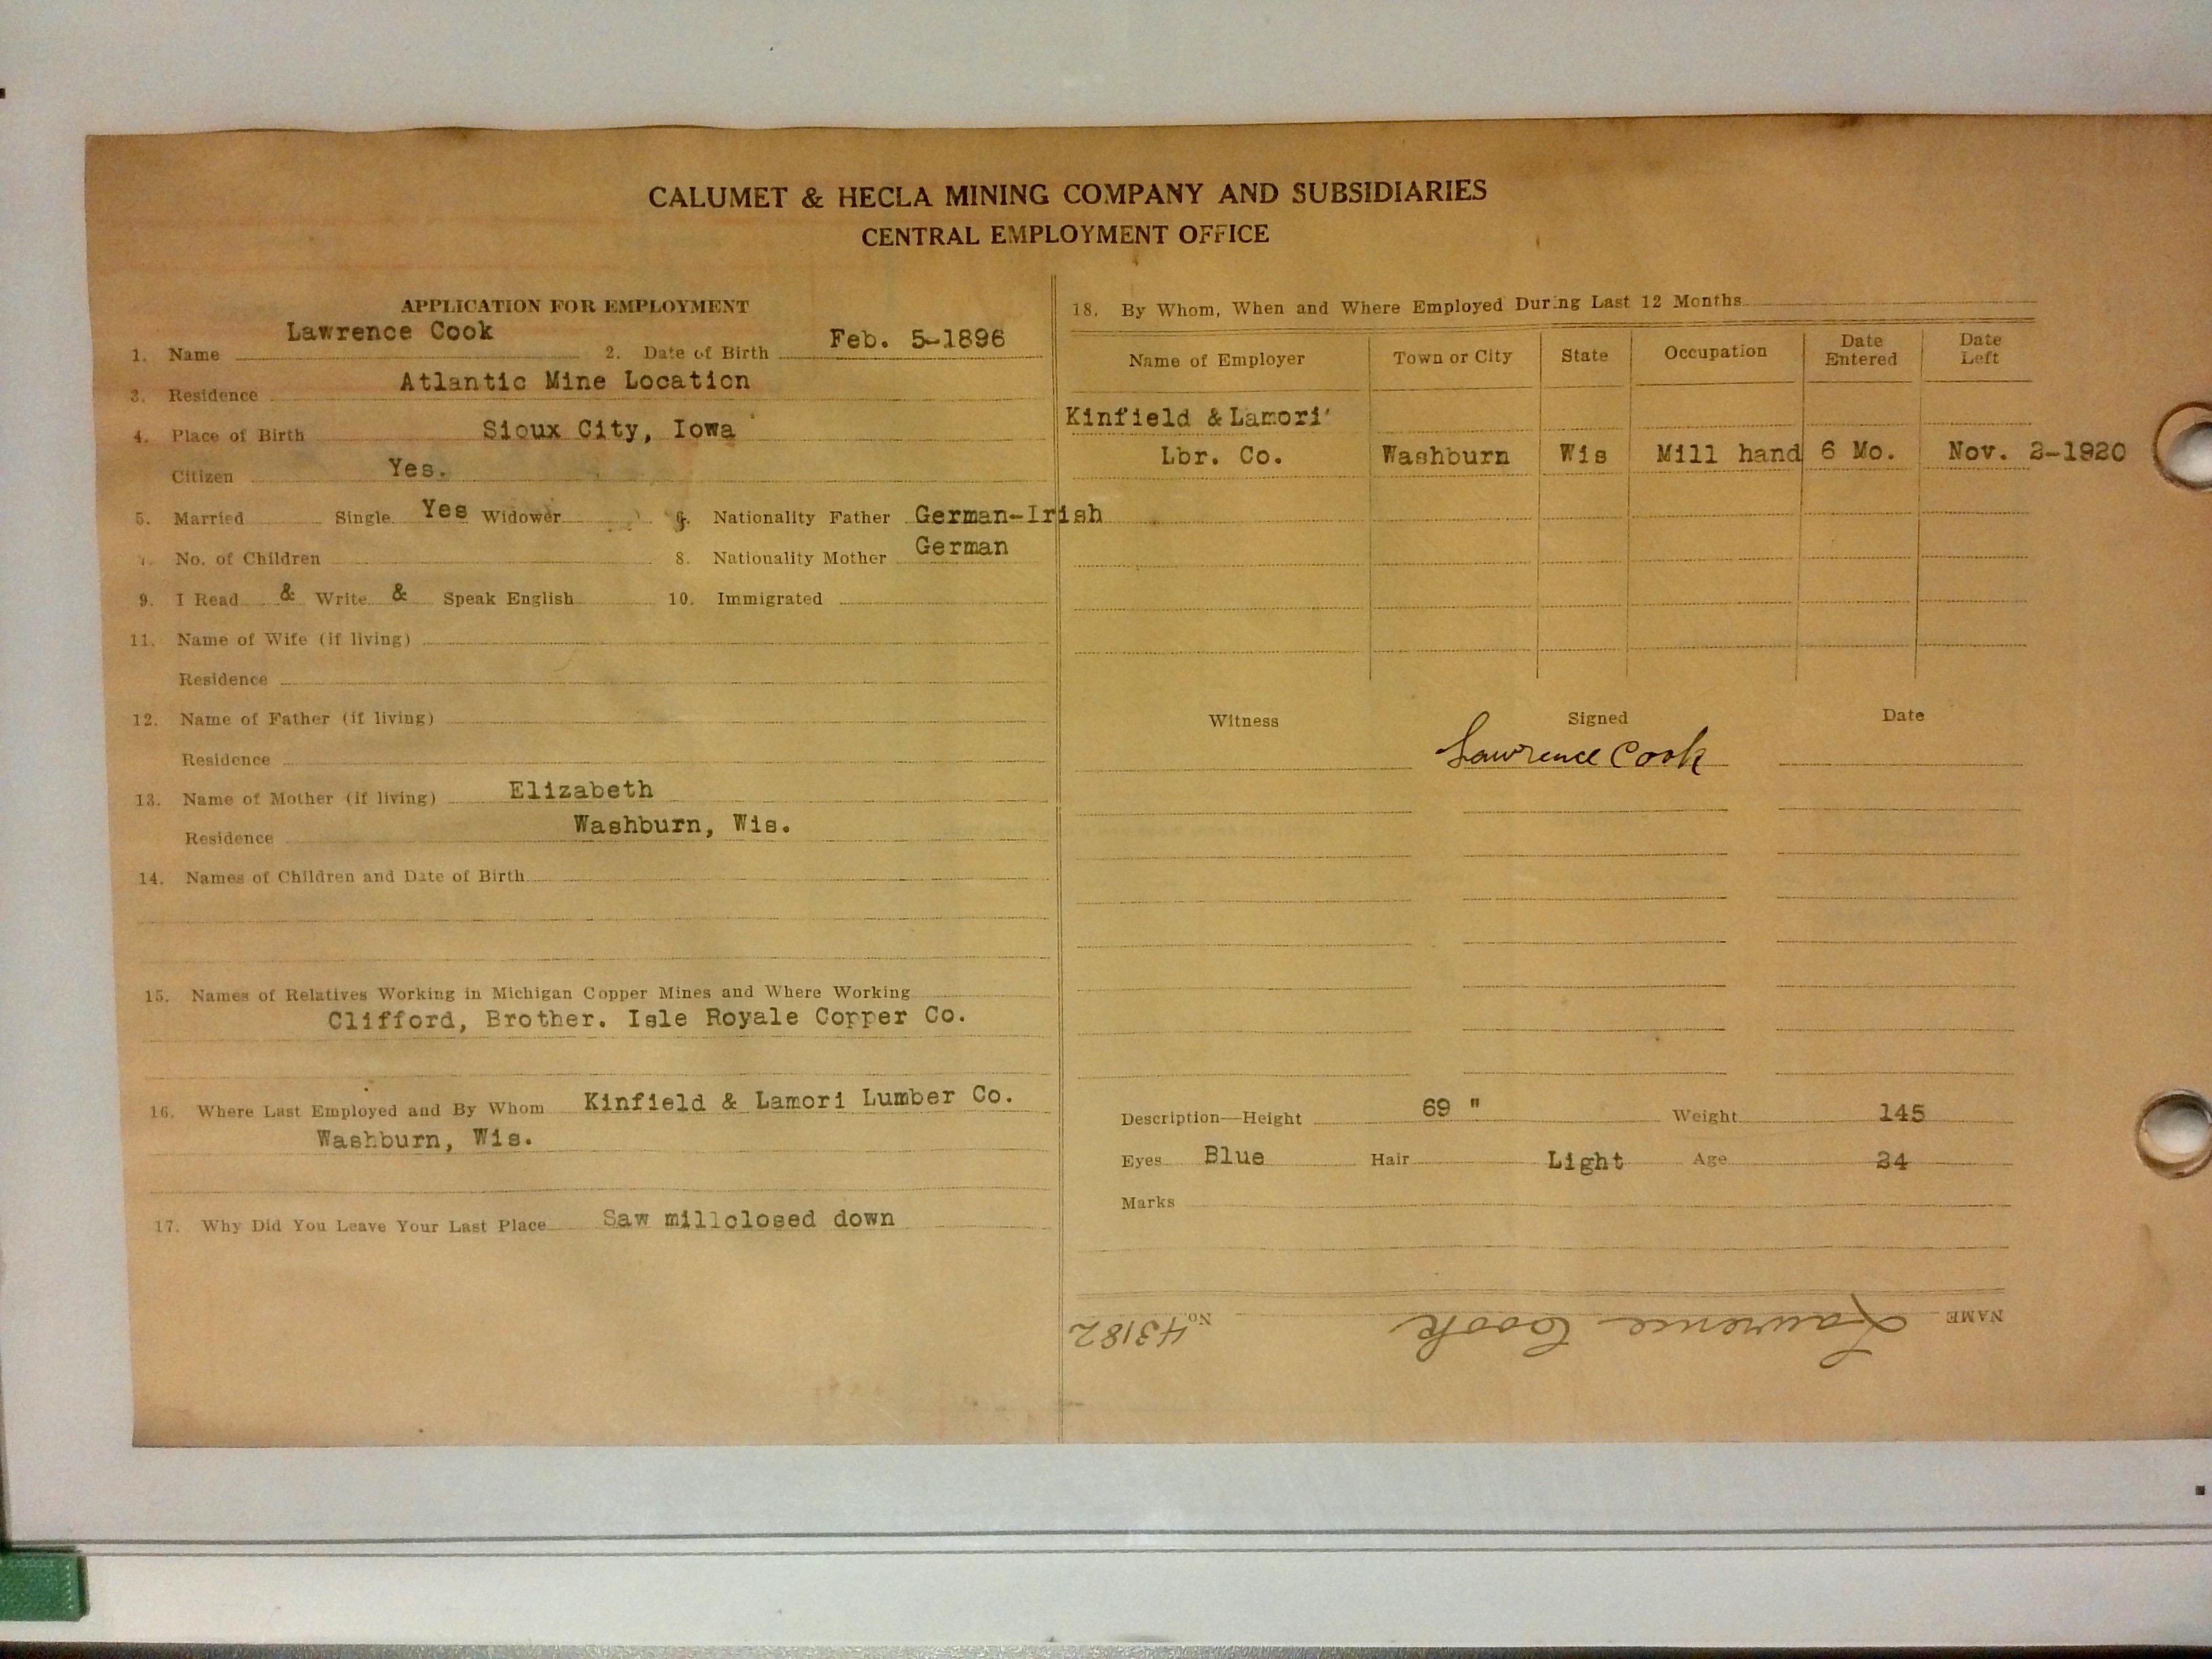 CALUMET & HECLA MINING COMPANY AND SUBSIDIARIES
CENTRAL EMPLOYMENT OFFICE
APPLICATION FOR EMPLOYMENT
1. Name Lawrence Cook 2. Date of Birth Feb. 5-1896
3. Residence Atlantic Mine Location
4. Place of Birth Sioux City, Iowa
Citizen Yes.
5. Married Single Yes Widower 6. Nationality Father German-Irish
7. No. of Children 8. Nationality Mother German
9. I Read & Write & Speak English 10. Immigrated
11. Name of Wife (if living)
Residence
12. Name of Father (if living)
Residence
13. Name of Mother (if living) Elizabeth
Residence Washburn, Wis.
14. Names of Children and Date of Birth
15. Names of Relatives Working in Michigan Copper Mines and Where Working
Clifford, Brother. Isle Royale Copper Co.
16. Where Last Employed and By Whom Kinfield & Lamori Lumber Co.
Washburn, Wis.
17. Why Did You Leave Your Last Place Saw millclosed down
18. By Whom, When and Where Employed During Last 12 Months
Name of Employer Town or City State Occupation Date Entered Date Left
Kinfield & Lamori
Lbr. Co. Washburn Wis Mill hand 6 Mo. Nov. 2-1920
Witness Signed Date
Lawrence Cook
Description—Height 69 " Weight 145
Eyes Blue Hair Light Age 24
Marks
NAME Lawrence Cook No. 43182